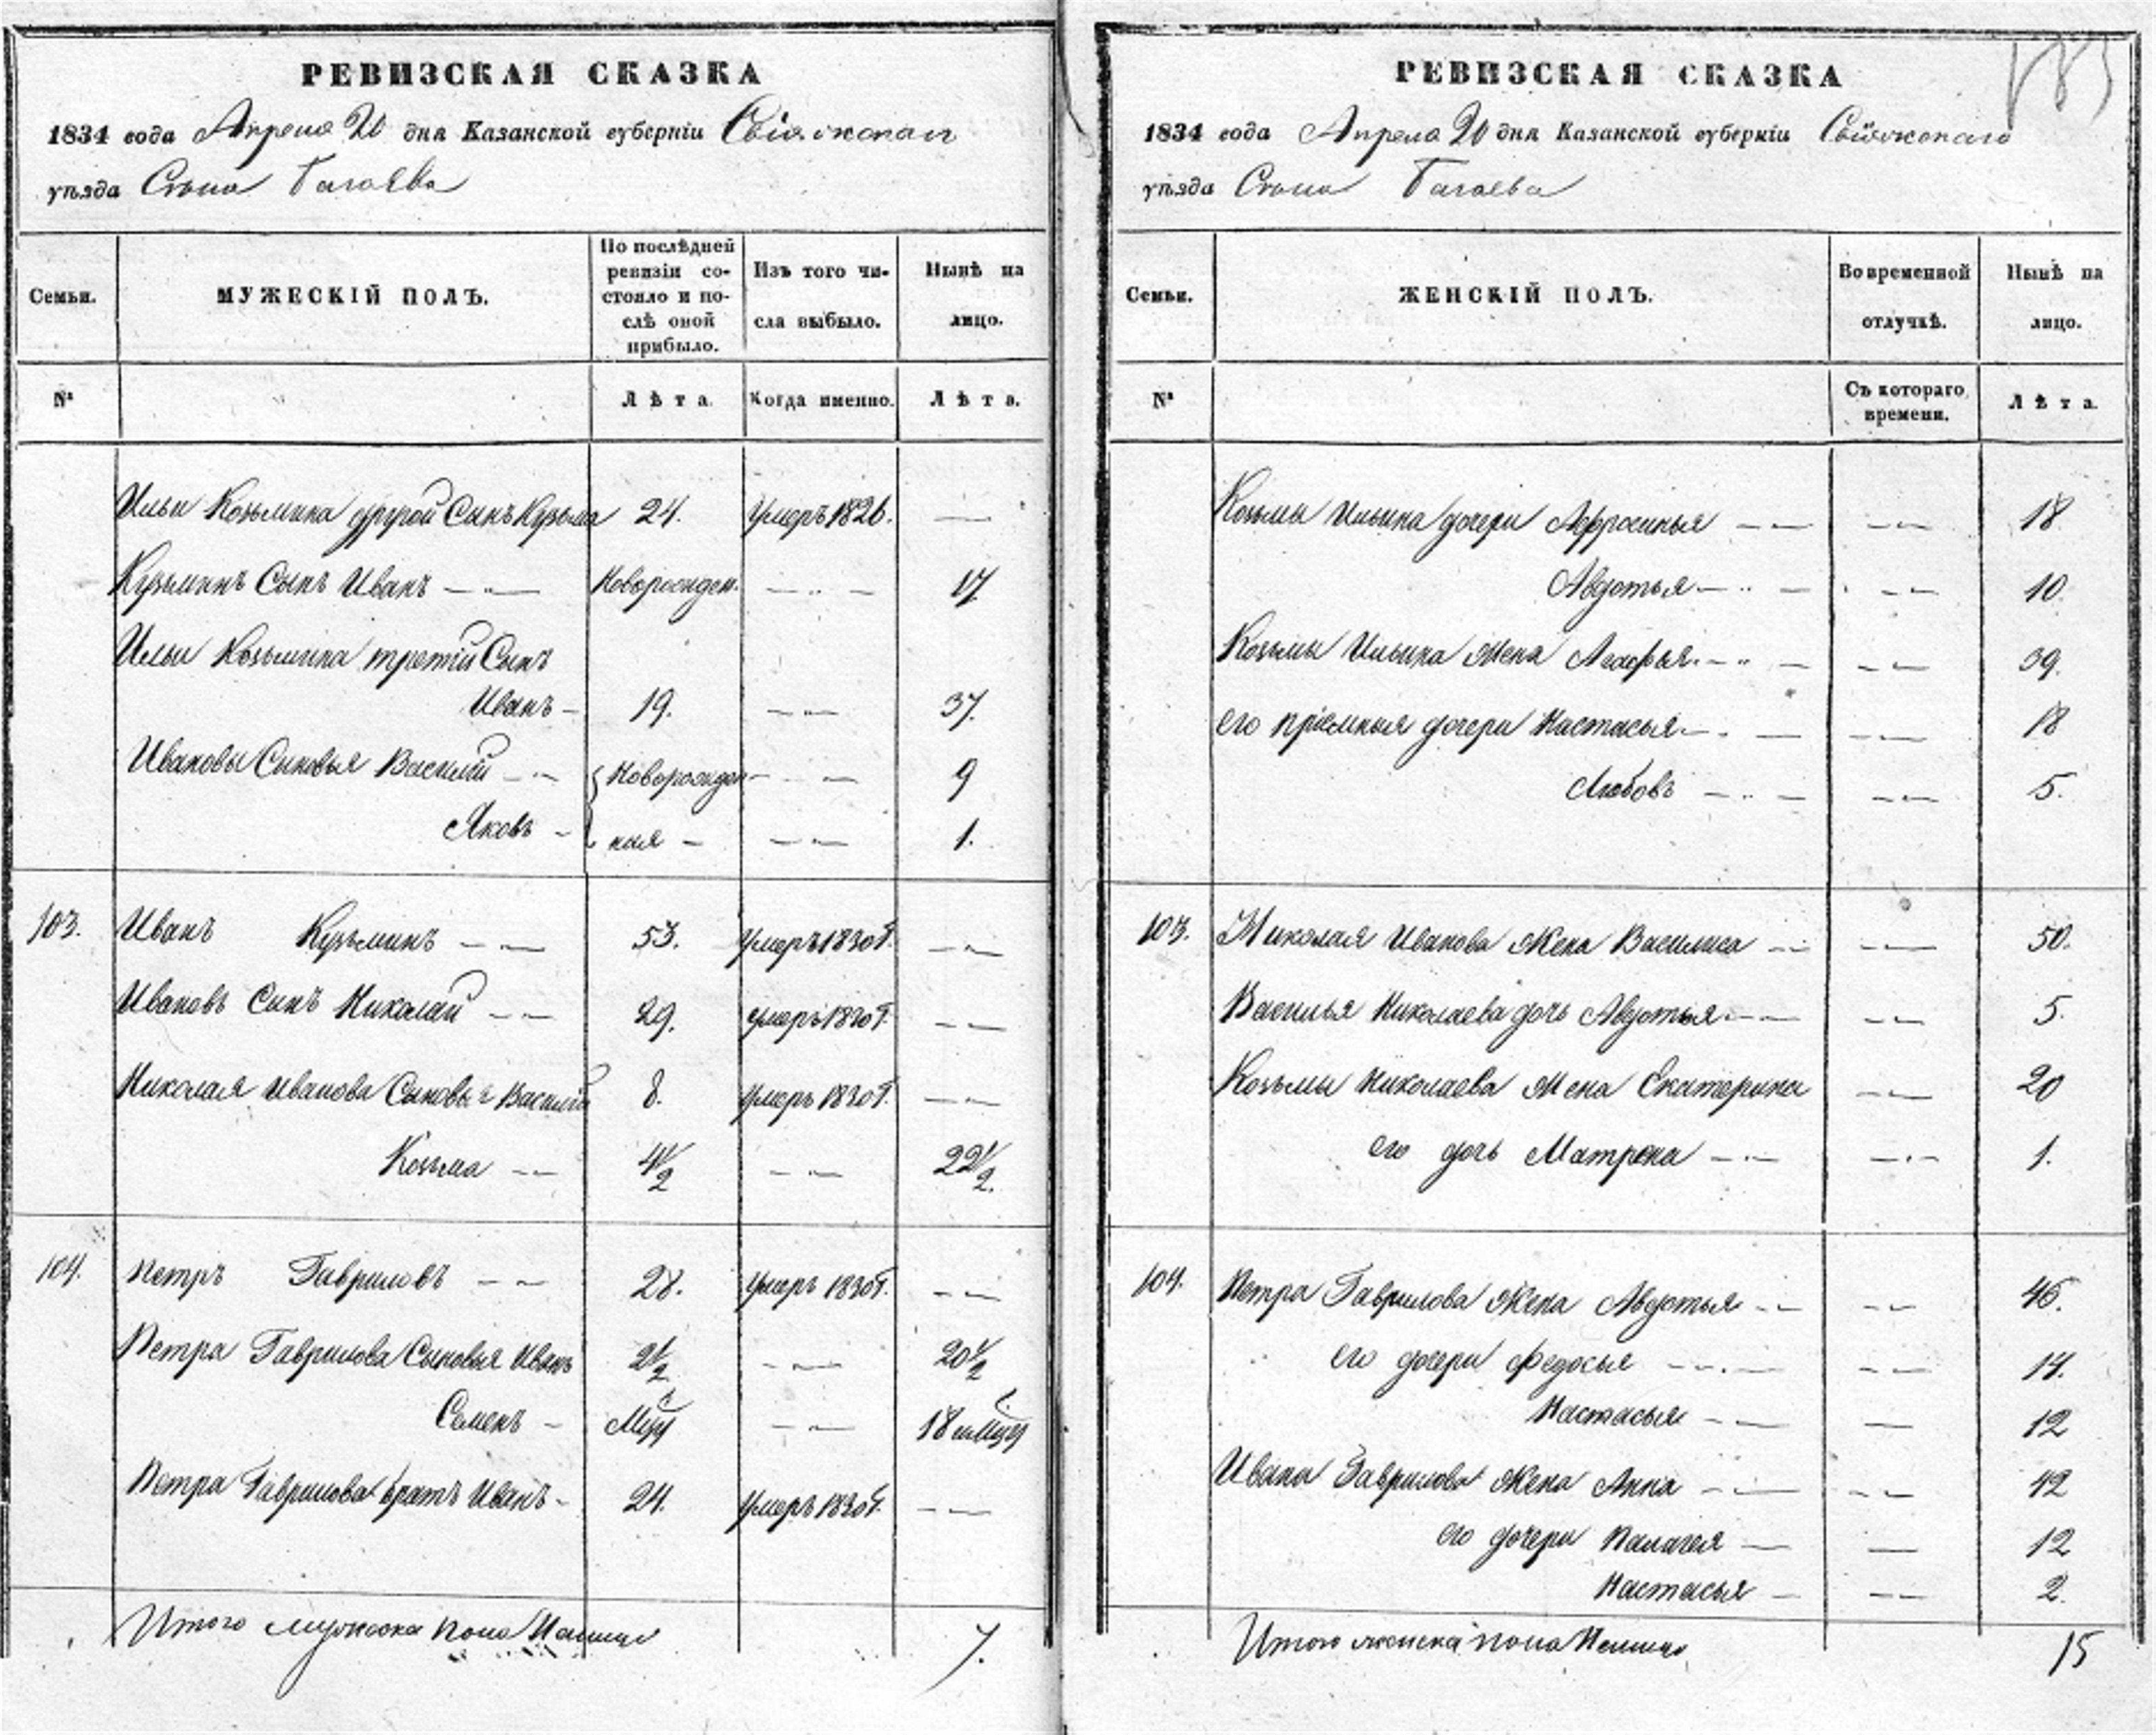 РЕВИЗСКАЯ СКАЗКА
1834 года Апреля 20 дня Казанской губерніи Свіяжскаго
уѣзда Села Багаева
Семьи.
МУЖЕСКІЙ ПОЛЪ.
По послѣдней
ревизіи со-
стояло и по-
слѣ оной
прибыло.
Изъ того чи-
сла выбыло.
Нынѣ на
лицо.
№
Лѣта.
Когда именно.
Лѣта.
Ильи Козьмина другой Сынъ Кузьма 24. Умеръ 1826. —
Кузьминъ Сынъ Иванъ — Новорожден. — 17
Ильи Козьмина третій Сынъ
Иванъ — 19. — 37.
Ивановы Сыновья Василій — Новорожден — 9
Яковъ — ныя — — 1.
103. Иванъ Кузьминъ — 53. Умеръ 1830 г. —
Ивановъ Сынъ Николай — 29. Умеръ 1830 г. —
Николая Иванова Сыновья Василій 8. Умеръ 1830 г. —
Козьма — 4 1/2 — 22 1/2.
104. Петръ Гавриловъ — 28. Умеръ 1830 г. —
Петра Гаврилова Сыновья Иванъ 2 1/2 — 20 1/2
Семенъ — — 18
Петра Гаврилова братъ Иванъ — 24. Умеръ 1830 г. —
Итого мужеска пола На лицо 7.
РЕВИЗСКАЯ СКАЗКА
183
1834 года Апреля 20 дня Казанской губерніи Свіяжскаго
уѣзда Села Багаева
Семьи.
ЖЕНСКІЙ ПОЛЪ.
Во временной
отлучкѣ.
Нынѣ на
лицо.
№
Съ котораго
времени.
Лѣта.
Козьмы Ильина дочери Афросинья — — 18
Авдотья — — 10.
Козьмы Ильина Жена Агафья — — 39.
его пріемныя дочери Настасья — — 18
Любовь — — 5.
103. Николая Иванова Жена Василиса — — 50.
Василья Николаева дочь Авдотья — — 5.
Козьмы Николаева Жена Екатерина — 20
его дочь Матрена — — 1.
104. Петра Гаврилова Жена Авдотья — — 46.
его дочери Федосья — — 14.
Настасья — — 12
Ивана Гаврилова Жена Анна — — 42
его дочери Палагея — — 12
Настасья — — 2.
Итого женска пола На лицо 15